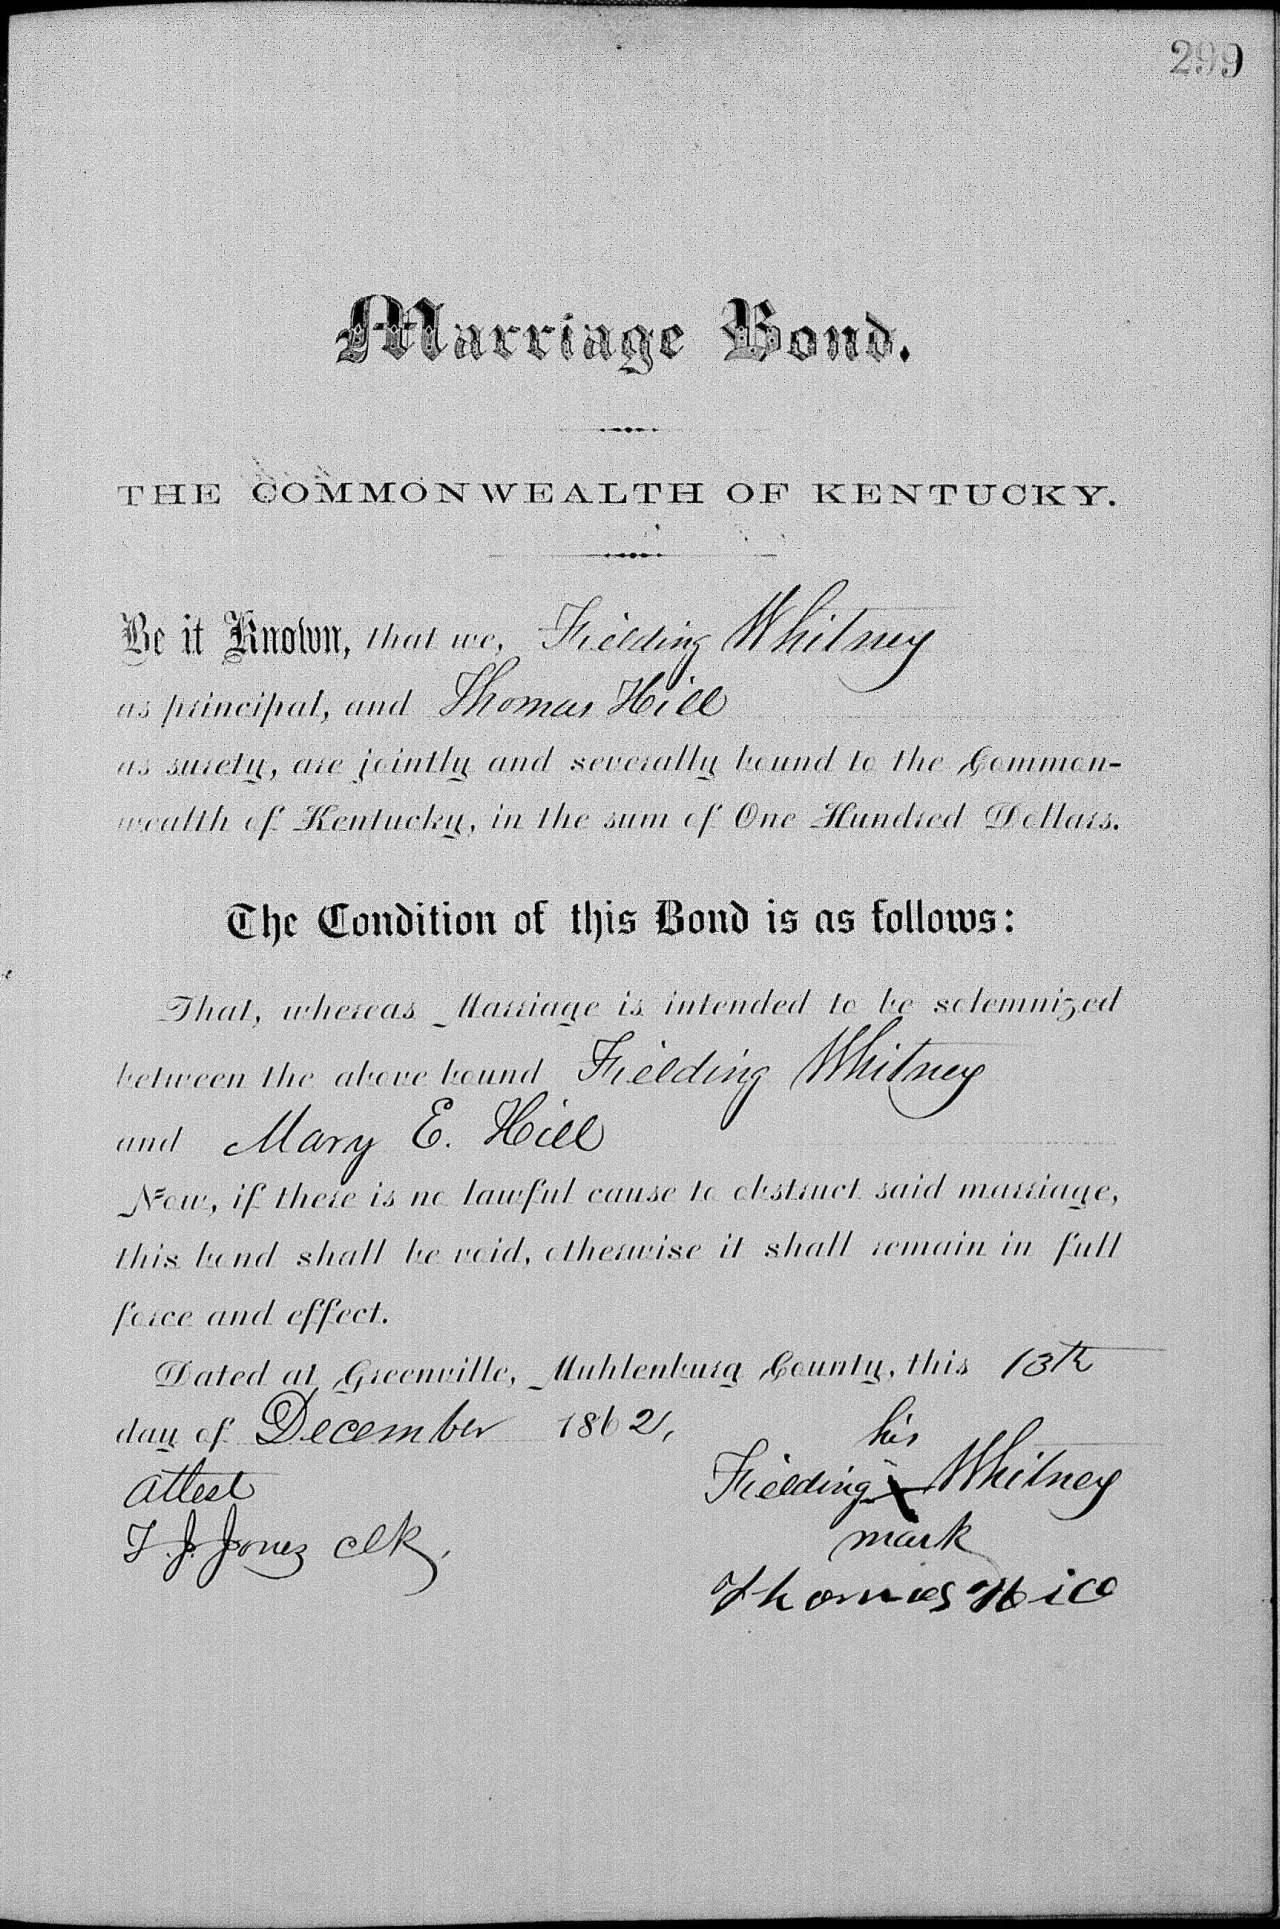 299
Marriage Bond.
THE COMMONWEALTH OF KENTUCKY.
Be it Known, that we, Fielding Whitney
as principal, and Thomas Hill
as surety, are jointly and severally bound to the Common-
wealth of Kentucky, in the sum of One Hundred Dollars.
The Condition of this Bond is as follows:
That, whereas Marriage is intended to be solemnized
between the above bound Fielding Whitney
and Mary E. Hill
Now, if there is no lawful cause to obstruct said marriage,
this bond shall be void, otherwise it shall remain in full
force and effect.
Dated at Greenville, Muhlenburg County, this 13th
day of December 1862,
his
Fielding X Whitney
mark
Attest
T. J. Jones clk.
Thomas Hill